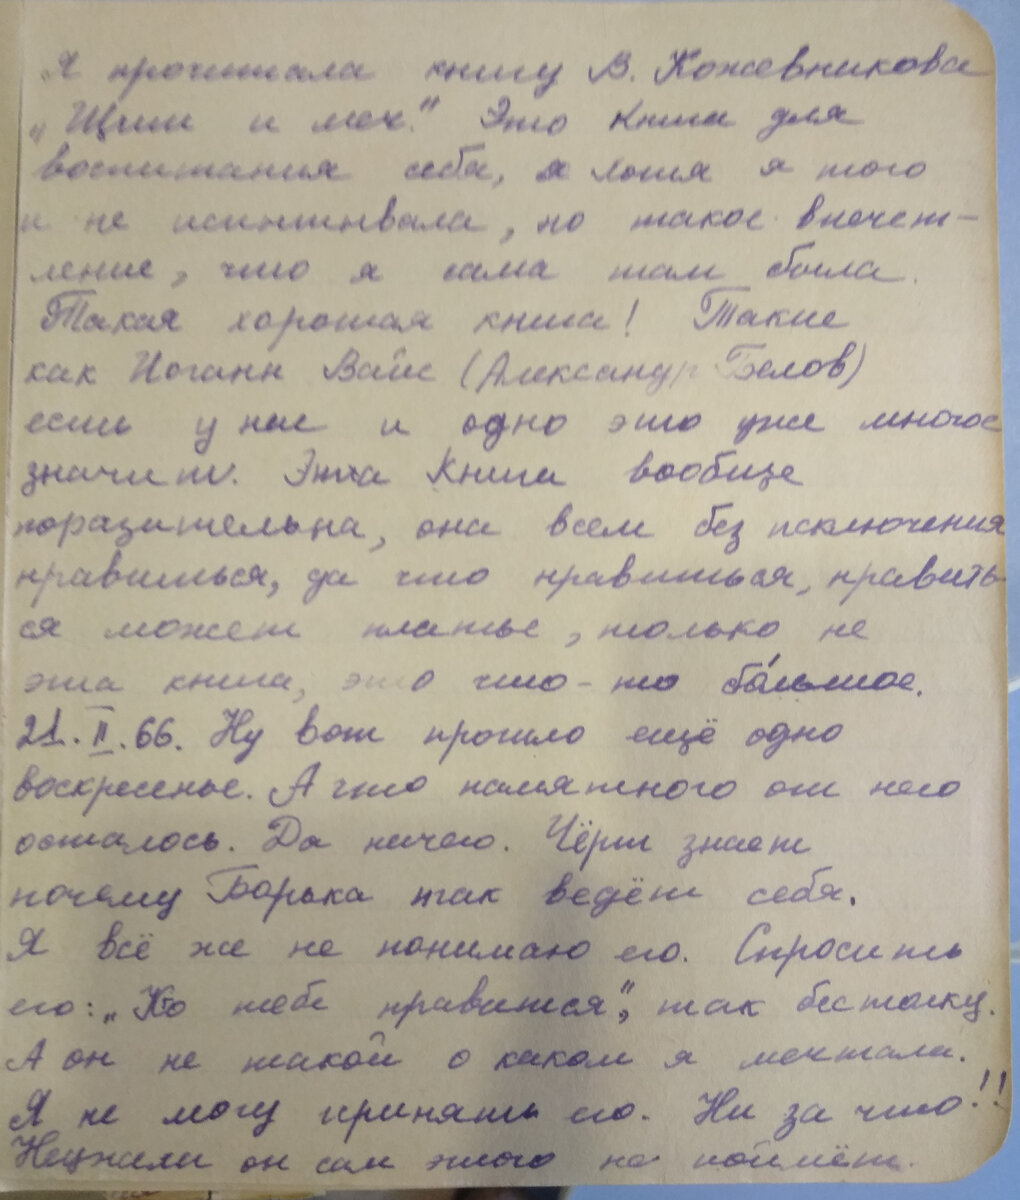 Я прочитала книгу В. Кожевникова
„Щит и меч." Это книга для
воспитания себя, я хотя я того
и не испытывала, но такое впечат-
ление, что я сама там была.
Такая хорошая книга! Такие
как Иоганн Вайс (Александр Белов)
есть у нас и одно это уже многое
значит. Эта книга вообще
поразительна, она всем без исключения
нравиться, да что нравиться, нравить-
ся может платье, только не
эта книга, это что-то бо́льшое.
21.II.66. Ну вот прошло ещё одно
воскресенье. А что памятного от него
осталось. Да ничего. Чёрт знает
почему Борька так ведёт себя.
Я всё же не понимаю его. Спросить
его: „Кто тебе нравится", так бестолку.
А он не такой о каком я мечтала.
Я не могу принять его. Ни за что!!
Неужели он сам этого не поймёт.